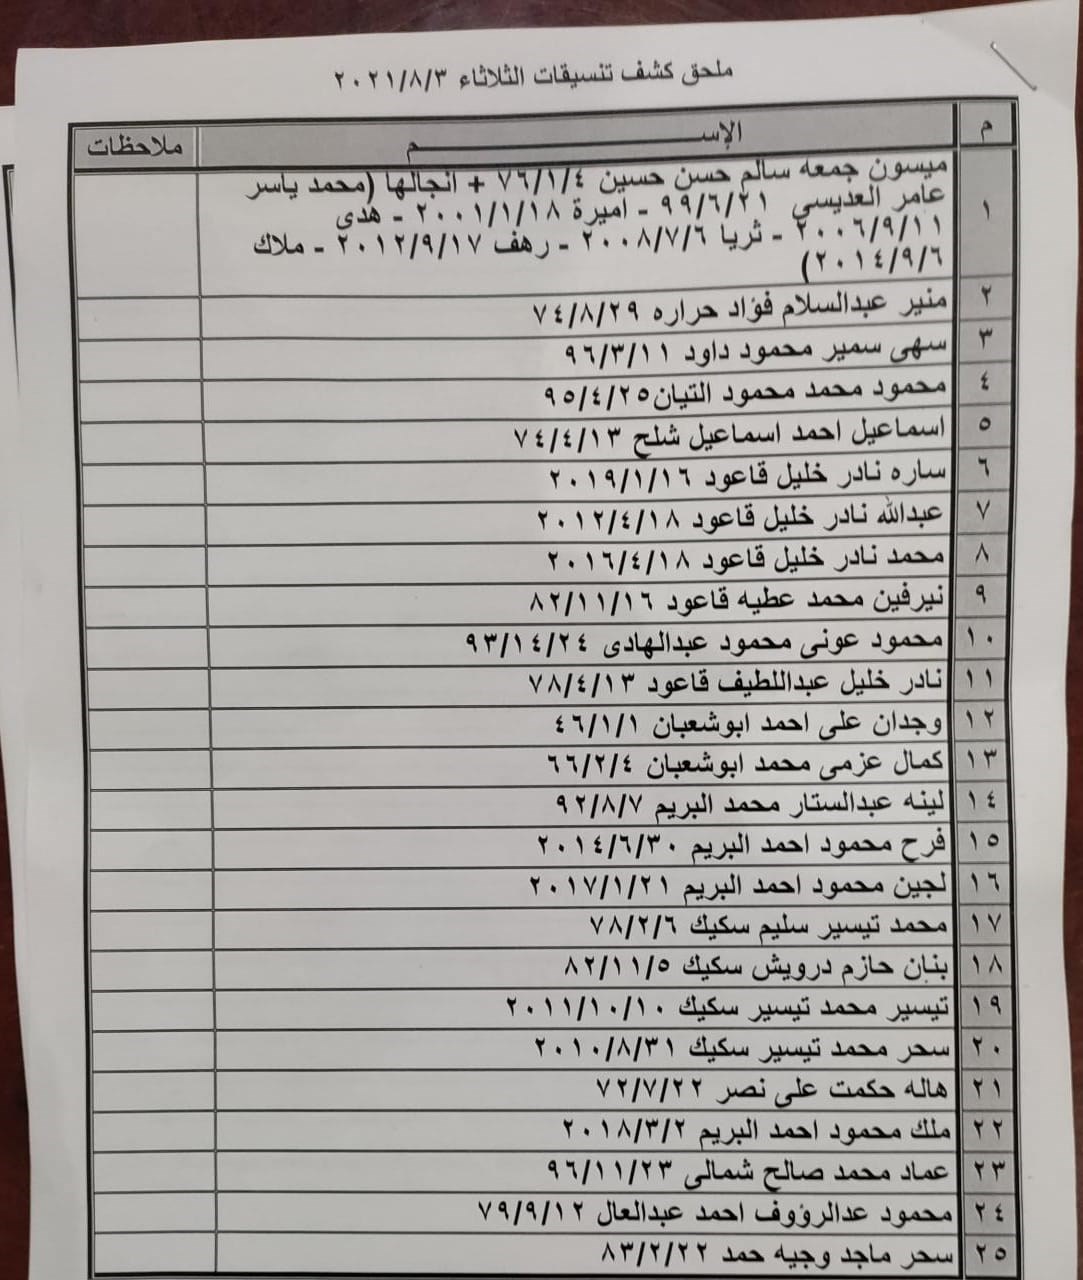 ملحق كشف تنسيقات الثلاثاء ٢٠٢١/٨/٣
م الإســـــــــم ملاحظات
١ ميسون جمعه سالم حسن حسين ٧٦/١/٤ + انجالها (محمد ياسر
عامر العديسي ٩٩/٦/٢١ - اميرة ٢٠٠١/١/١٨ - هدى
٢٠٠٦/٩/١١ - ثريا ٢٠٠٨/٧/٦ - رهف ٢٠١٢/٩/١٧ - ملاك
٢٠١٤/٩/٦)
٢ منير عبدالسلام فؤاد حراره ٧٤/٨/٢٩
٣ سهى سمير محمود داود ٩٦/٣/١١
٤ محمود محمد محمود التيان٩٥/٤/٢٥
٥ اسماعيل احمد اسماعيل شلح ٧٤/٤/١٣
٦ ساره نادر خليل قاعود ٢٠١٩/١/١٦
٧ عبدالله نادر خليل قاعود ٢٠١٢/٤/١٨
٨ محمد نادر خليل قاعود ٢٠١٦/٤/١٨
٩ نيرفين محمد عطيه قاعود ٨٢/١١/١٦
١٠ محمود عونى محمود عبدالهادى ٩٣/١٤/٢٤
١١ نادر خليل عبداللطيف قاعود ٧٨/٤/١٣
١٢ وجدان على احمد ابوشعبان ٤٦/١/١
١٣ كمال عزمى محمد ابوشعبان ٦٦/٢/٤
١٤ لينه عبدالستار محمد البريم ٩٢/٨/٧
١٥ فرح محمود احمد البريم ٢٠١٤/٦/٣٠
١٦ لجين محمود احمد البريم ٢٠١٧/١/٢١
١٧ محمد تيسير سليم سكيك ٧٨/٢/٦
١٨ بنان حازم درويش سكيك ٨٢/١١/٥
١٩ تيسير محمد تيسير سكيك ٢٠١١/١٠/١٠
٢٠ سحر محمد تيسير سكيك ٢٠١٠/٨/٣١
٢١ هاله حكمت على نصر ٧٢/٧/٢٢
٢٢ ملك محمود احمد البريم ٢٠١٨/٣/٢
٢٣ عماد محمد صالح شمالى ٩٦/١١/٢٣
٢٤ محمود عدالرؤوف احمد عبدالعال ٧٩/٩/١٢
٢٥ سحر ماجد وجيه حمد ٨٣/٢/٢٢